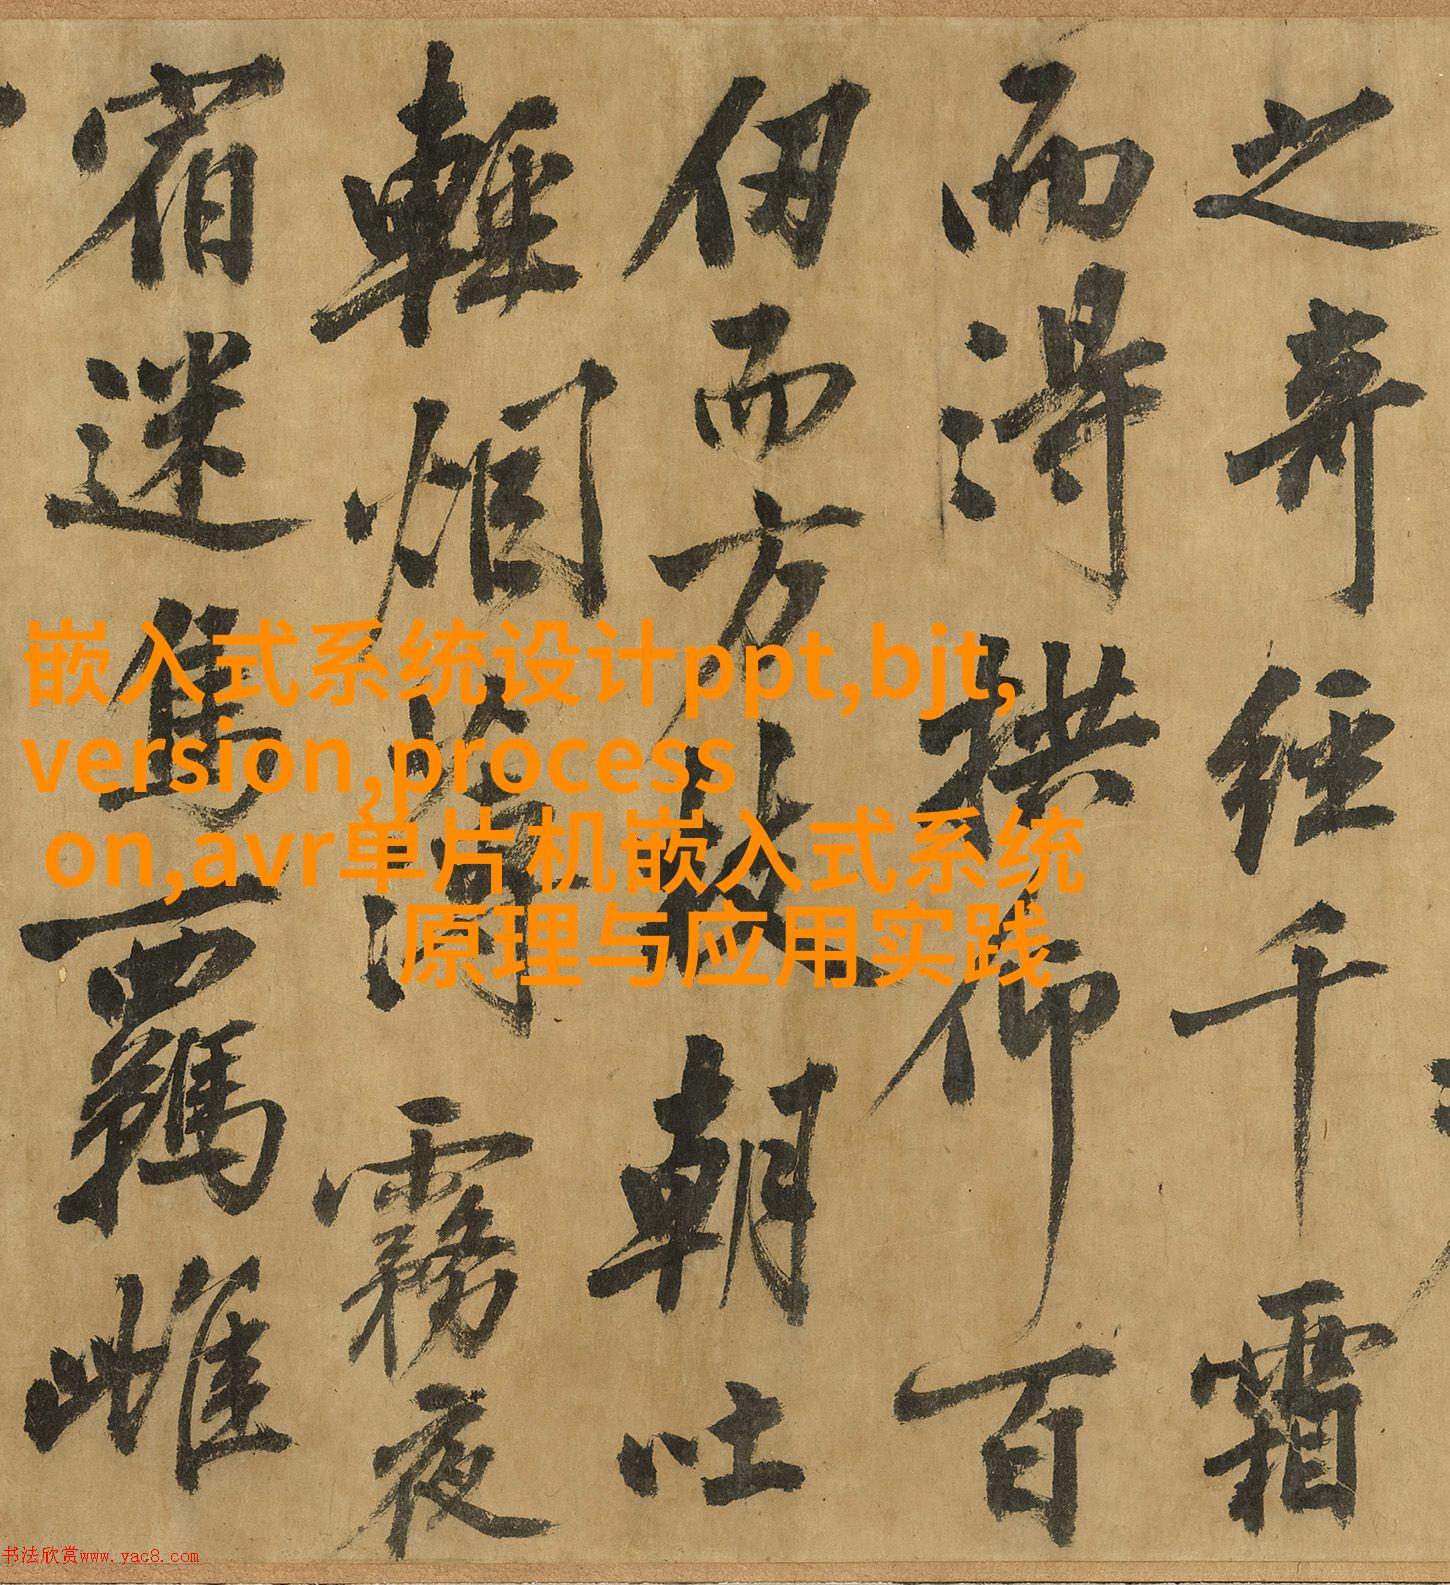 之奇經千霜
而得拱仰百
仞而方枝朝吐
輕烟薄霧夜
宿迷鳥羈雌
嵌入式系统设计ppt,bjt,
version,process
on,avr单片机嵌入式系统
原理与应用实践
书法欣赏www.yac8.com